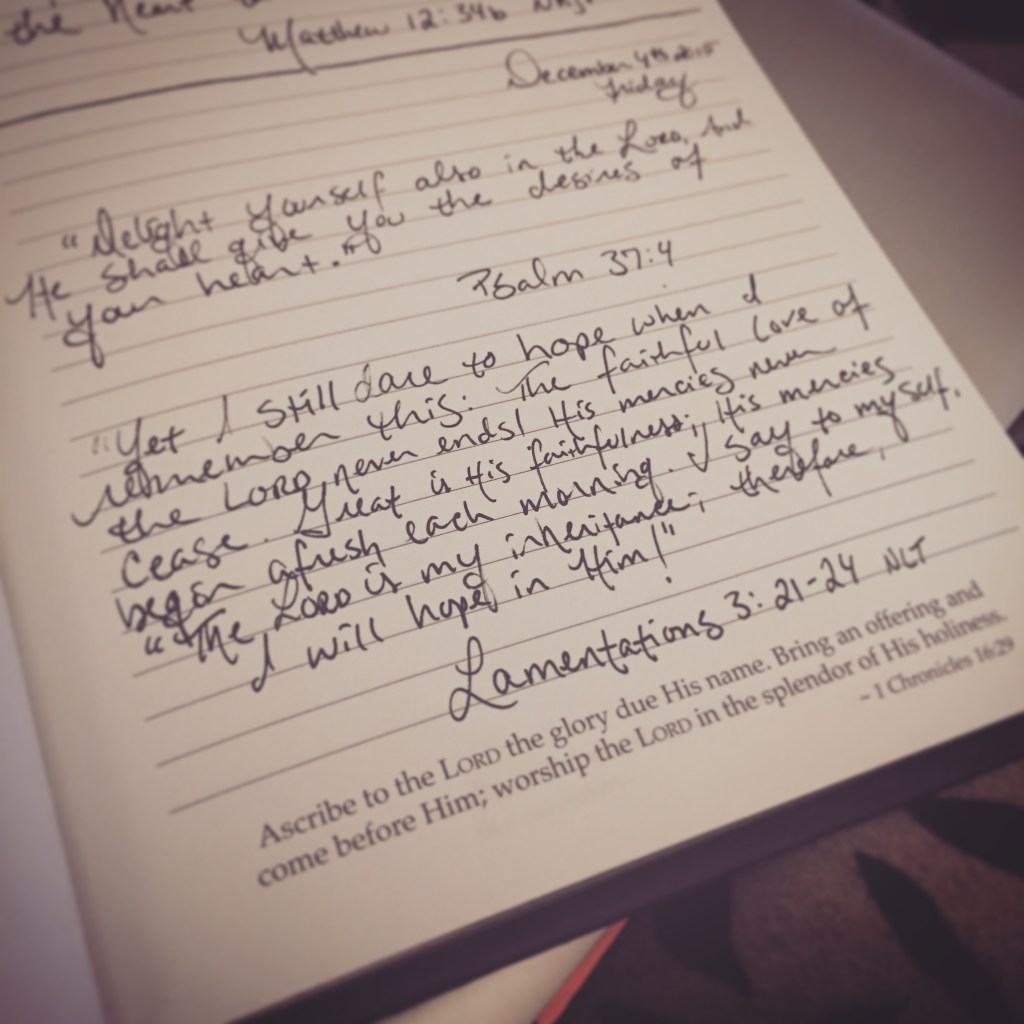 the Heart
Matthew 12:34b NKJ
December 4th 2015
Friday
"Delight yourself also in the LORD, And
He shall give you the desires of
your heart."
Psalm 37:4
"Yet I still dare to hope when I
remember this: The faithful love of
the LORD never ends! His mercies never
cease. Great is His faithfulness; His mercies
begin afresh each morning. I say to myself,
"The LORD is my inheritance; therefore,
I will hope in Him!"
Lamentations 3:21-24 NLT
Ascribe to the LORD the glory due His name. Bring an offering and
come before Him; worship the LORD in the splendor of His holiness.
~ 1 Chronicles 16:29